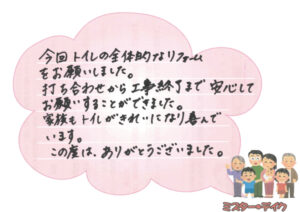 今回トイレの全体的なリフォーム
をお願いしました。
打ち合わせから工事終了まで安心して
お願いすることができました。
家族もトイレがきれいになり喜んで
います。
この度は、ありがとうございました。
ミスターデイク